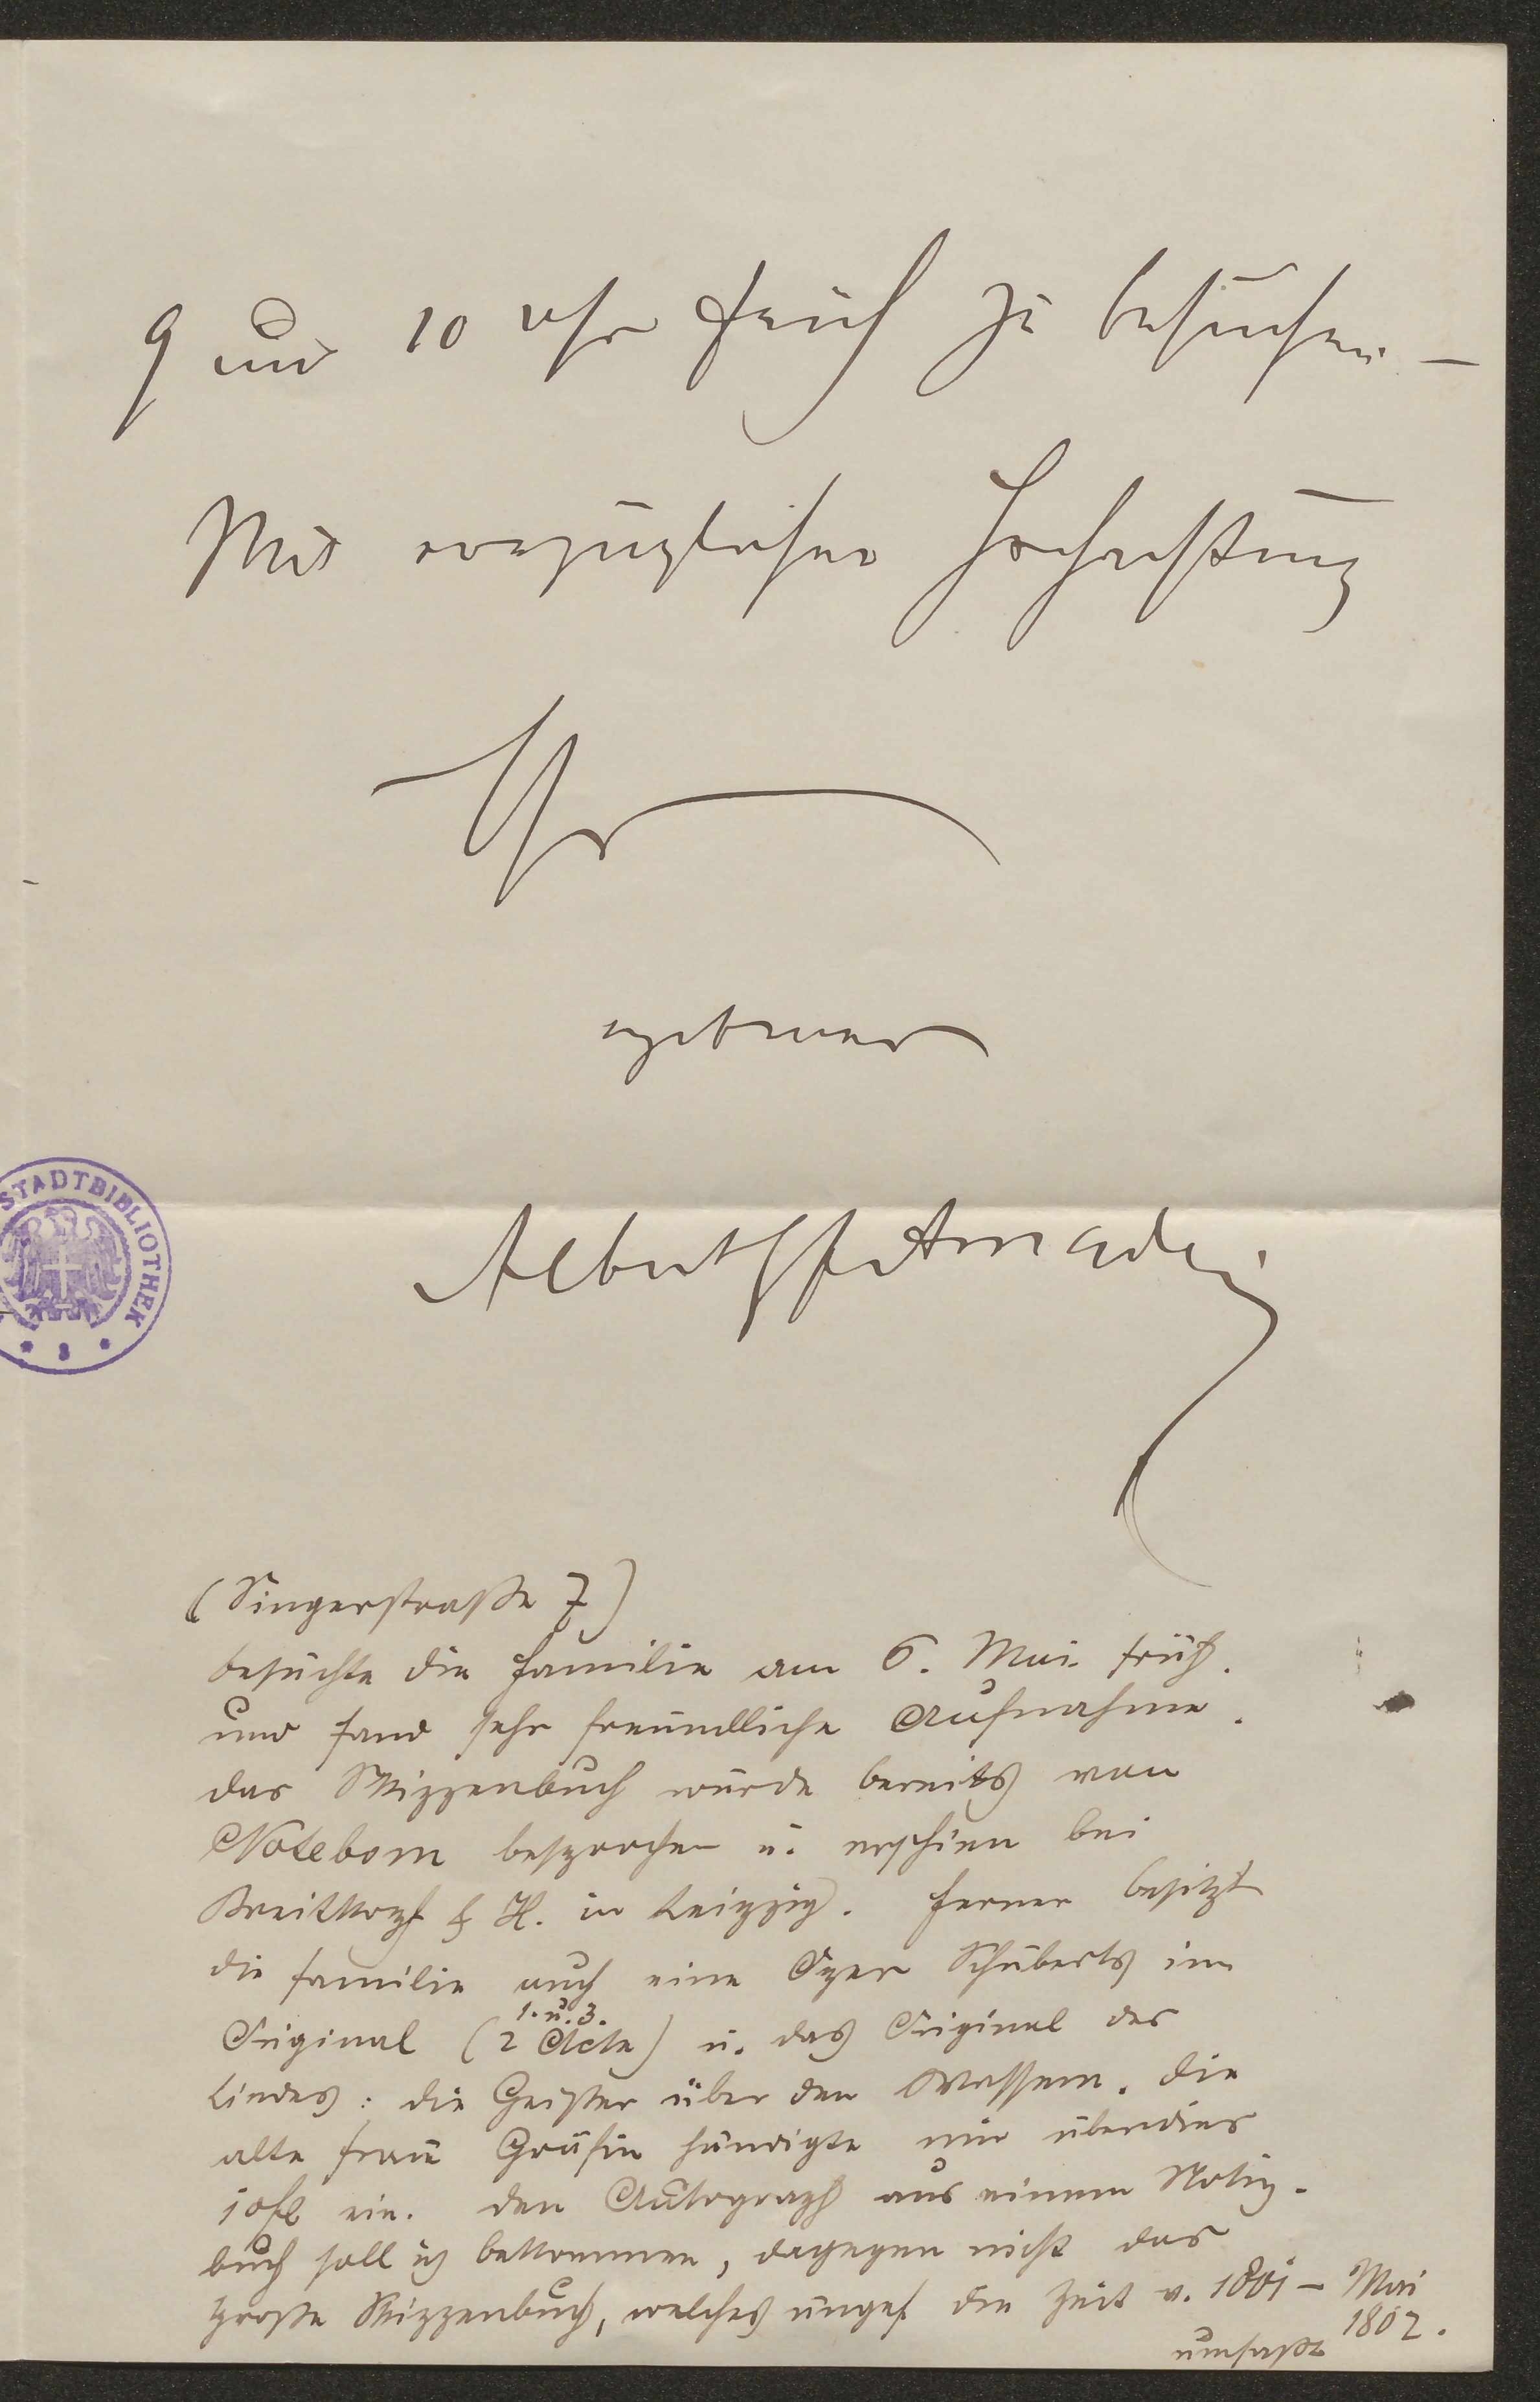 9 und 10 Uhr früh zu besuchen. —
Mit vorzüglicher Hochachtung
Ihr
ergebener
Albert
STADTBIBLIOTHEK
(Singerstraße 7)
besuchte die Familie am 6. Mai früh.
und fand sehr freundliche Aufnahme.
das Skizzenbuch wurde bereits von
Notebom besprochen u. erschien bei
Breitkopf & H. in Leipzig. Ferner besitzt
die Familie auch eine Oper Schuberts im
1. u. 3.
Original (2 Acte) u. das Original des
Liedes: die Geister über den Wassern. Die
alte Frau Gräfin händigte mir überdies
10 fl ein. Den Autograph aus einem Notiz-
buch soll ich bekommen, dagegen nicht das
große Skizzenbuch, welches ungef die Zeit v. 1801 – Mai
1802.
umfaßt